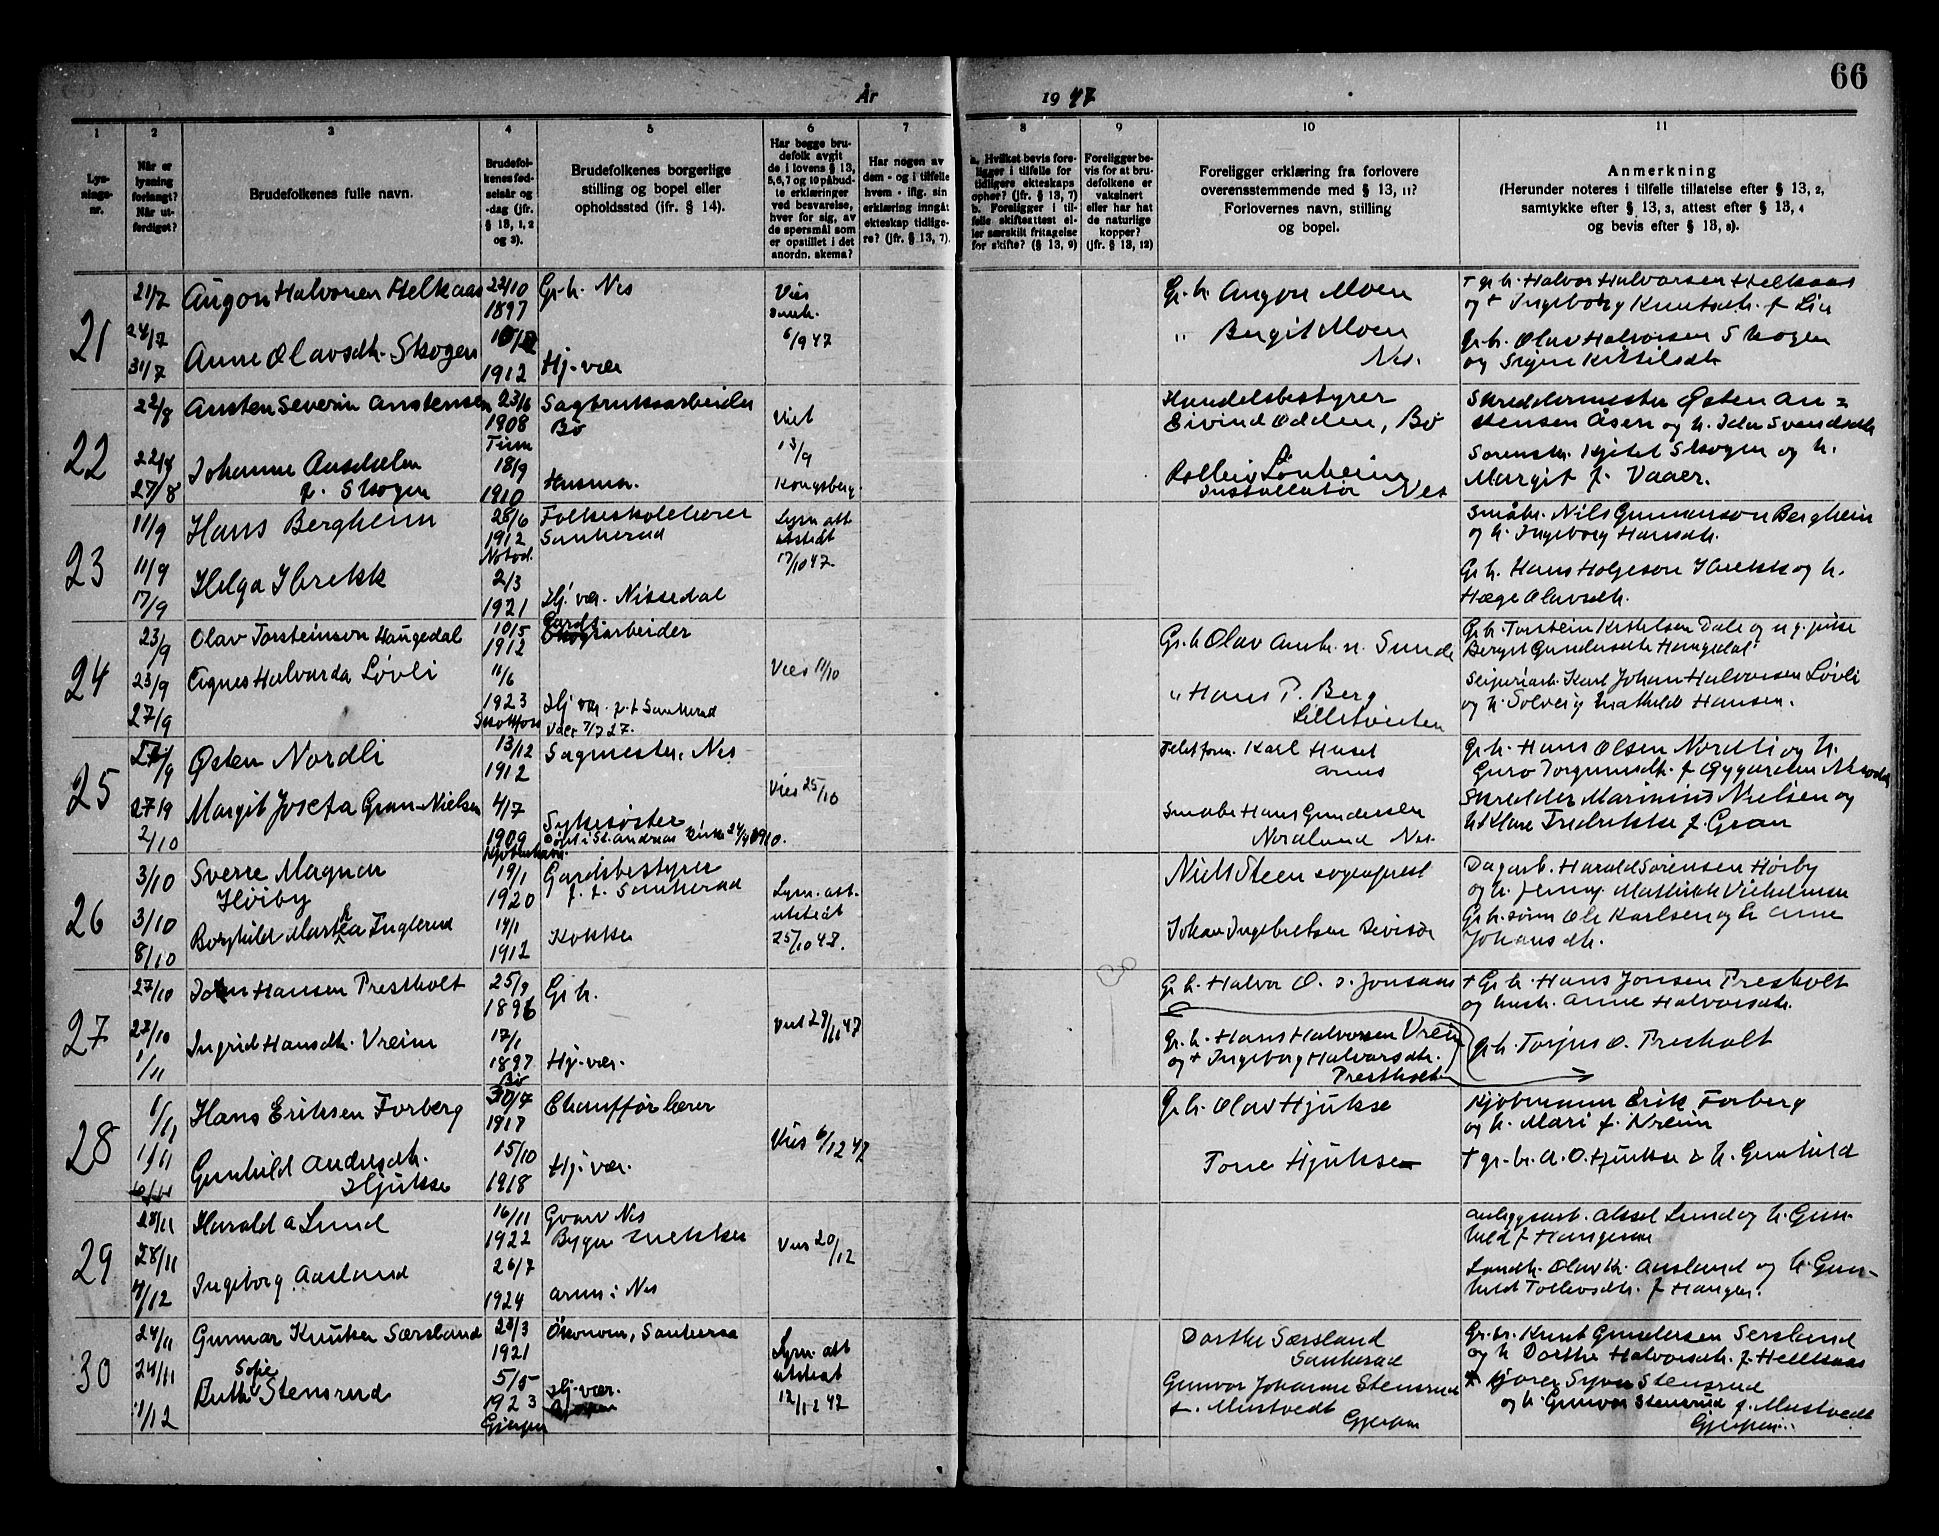 År 1947
66
1
2
3
4
5
6
7
8
9
10
11
Lysningsnr.
Når er lysning forlangt? Når utferdiget?
Brudefolkenes fulle navn.
Brudefolkenes fødselsår og -dag (jfr. § 13, 1, 2 og 3).
Brudefolkenes borgerlige stilling og bopel eller opholdssted (ifr. § 14).
Har begge brudefolk avgit de i lovens § 13, 5, 6, 7 og 10 påbudte erklæringer ved besvarelse, hver for sig, av de spørsmål som er opstillet i det anordn. skema?
Har nogen av dem - og i tilfelle hvem - iflg. sin erklæring inngåt ekteskap tidligere? (jfr. § 13, 7).
a. Hvilket bevis foreligger i tilfelle for tidligere ekteskaps ophør? (jfr. § 13, 7)
b. Foreligger i tilfelle skifteattest eller særskilt fritagelse for skifte? (§ 13, 9)
Foreligger bevis for at brudefolkene er vaksinert eller har hat de naturlige kopper? (jfr. § 13, 12)
Foreligger erklæring fra forlovere overensstemmende med § 13, 11? Forlovernes navn, stilling og bopel.
Anmerkning
(Herunder noteres i tilfelle tillatelse efter § 13, 2, samtykke efter § 13, 3, attest efter § 13, 4 og bevis efter § 13, 8).
21
21/7 Augon Halvorsen Helkaas 22/10 1897 Gr.b. Nes
24/7 31/7 Anne Olavsdtr. Skogen 1912 Hj. vær
Vies 6/9 47
Gr.b. Augon Moen
" Birgit Moen Nes.
+ gr.b. Halvor Halvorsen Helkaas
og + Ingeborg Knutsdtr. f. Lie
Gr.b. Olav Halvorsen Skogen
og Signe Kittilsdtr
22
22/8 Ansten Severin Anstensen 23/6 1908 Sagbruksarbeider Bø
27/8 Johanne f. Skogen 18/9 1910 Husmor.
Viet 13/9 Kongsberg
Handelsbestyrer
Eivind Odden, Bø
Lønheim
Installatør Nes
Skreddermester Østen An=
stensen Åsen og h. Ida Svendsdtr
Kjetil Skogen og h.
Margit f. Vaaer.
23
11/9 Hans Bergheim 28/6 1912 Folkeskolelærer Sauherad
11/9 17/9 Helga Ibrekk 2/3 1921 Hj. vær. Nissedal
Lysn. att. utstedt 17/10 47
Småbr. Nils Gunnarson Bergheim
og h. Ingeborg Hansdtr.
Gr.b. Hans Holgeson Ibrekk og h.
Hæge Olavsdtr.
24
23/9 Olav Torsteinson Haugedal 10/5 1912 Gards arbeider
23/9 27/9 Agnes Halvarda Løvli 11/6 1923 Hj. vær. p.t. Sauherad
Vies 11/10
Gr.b. Olav Sunde
" Hans P. Berg
Gr.b. Torstein Kittelsen Dale og ug. pike
Bergit Gundersdtr Haugedal
Karl Johan Halvorsen Løvli
og h. Solveig Mathilde Hansen.
25
27/9 Østen Nordli 13/12 1912 Sagmester. Nes
27/9 2/10 Margit Josefa Gran-Nielsen 4/7 1909 Sykesøster
Døpt i St. Andreas kirke
Vies 25/10
Karl
Småbr. Hans Gundersen
Nordlund Nes
Gr.b. Hans Olsen Nordli og h.
Guro
Skredder Marinius Nielsen og
h. Klara Fredrikke f. Gran
26
3/10 Sverre Magnar Høiby 19/1 1920 Gardsbestyrer p.t. Sauherad
3/10 8/10 Borghild Martha Fuglerud 14/1 1912 Kokke
Lysn. att. utstedt 25/10 47.
Niels Steen sogneprest
Johan Ingebretsen
Dagarb. Harald Sørensen Høiby
og h. Jenny Mathilde Vilhelmsen
Ole Karlsen og h. Anne
Johansdtr.
27
27/10 John Hansen Prestholt 25/9 1896 Gr.b.
27/10 1/11 Ingrid Hansdtr. Vreim 17/1 1897 Bø Hj. vær.
Viet 29/11 47
Gr.b. Halvor O. Jonsaas
Gr.b. Hans Halvorsen Vreim
og + Ingeborg Halvorsdtr.
Prestholt
+ Gr.b. Hans Jonsen Prestholt
og hust. Anne Halvorsdtr.
Gr.b. Torjus O. Presholt
28
1/11 Hans Eriksen Forberg 30/7 1917 Chauffør lærer
1/11 Gunhild Andresdtr. Hjukse 15/10 1918 Hj. vær.
Vies 6/12 47
Gr.b. Olav Hjukse
Tone Hjukse
Kjøbmann Erik Forberg
og h. Mari f. Vreim
+ gr.br. A. O. Hjukse & h. Gunhild
29
28/11 Harald A Lund 16/11 1922 Gvarv Nes
28/11 4/12 Ingeborg Aasland 26/7 1924 Nes
Vies 20/12
Anleggsarb. Aksel Lund og h. Gun-
hild f.
Landh. Olav K. Aasland og h. Gun-
hild Tollevsdtr. f. Haugen.
30
24/11 Gunnar Knutsen Særsland 23/3 1921 Økonom, Sauherad
24/11 1/12 Ruth Sofie Stensrud 5/5 1923 Gjerpen Hj. vær.
Lysn. att utstedt 12/12 47
Dorthe Særsland
Sauherad
Gunvor Johanne Stensrud
f. Mustvedt Gjerpen
Gr.br. Knut Gundersen Sersland
og h Dorthe Halvorsdtr. f. Helkaas
Stensrud
og h. Gunvor Stensrud f. Mustvedt
Gjerpen.